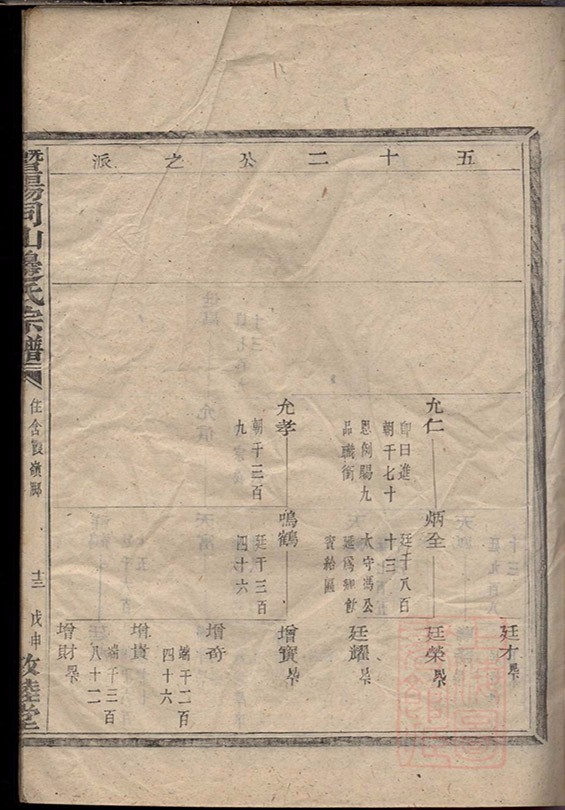 五十二公之派
允仁
即日進
朝千七十
恩例賜九
品職銜
允孝
朝千三百
九
炳全
廷千八百
十三
太守馮公
延爲鄉飲
賓給匾
鳴鶴
廷千三百
四十六
廷才
廷榮
廷耀
增寶
增奇
端千二百
四十六
增貴
端千三百
八十二
增財
暨陽同山邊氏宗譜
住含霞嶺腳
十三
戊申
敦睦堂